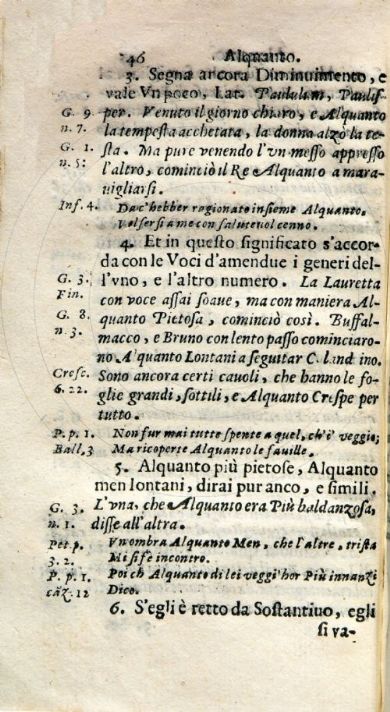 46 Alquanto.
3. Segna ancora Diminuimento, e
vale Vn poco, Lat. Paululum, Paulis-
G. 9. per. Venuto il giorno chiaro, e Alquanto
n. 7. la tempesta acchetata, la donna alzò la te-
G. 1. sta. Ma pure venendo l'vn messo appresso
n. 5: l'altro, cominciò il Re Alquanto a mara-
uigliarsi.
Inf. 4. Da c'hebber ragionato insieme Alquanto,
Volsersi a me con saluteuol cenno.
4. Et in questo significato s'accor-
da con le Voci d'amendue i generi del-
G. 3. l'vno, e l'altro numero. La Lauretta
Fin. con voce assai soaue, ma con maniera Al-
G. 8. quanto Pietosa, cominciò così. Buffal-
n. 3. macco, e Bruno con lento passo cominciaro-
no Alquanto Lontani a seguitar Calandrino.
Cresc. Sono ancora certi cauoli, che hanno le fo-
6. 22. glie grandi, sottili, e Alquanto Crespe per
tutto.
P. p. 1. Non fur mai tutte spente a quel, ch'i' veggio;
Ball. 3 Ma ricoperte Alquanto le fauille.
5. Alquanto più pietose, Alquanto
men lontani, dirai pur anco, e simili.
G. 3. L'vna, che Alquanto era Più baldanzosa,
n. 1. disse all'altra.
Pet. p. Vn ombra Alquanto Men, che l'altre, trista
3. 2. Mi si fe incontro.
P. p. 1. Poi ch Alquanto di lei veggi' hor Più innanzi
cāz. 12 Dico.
6. S'egli è retto da Sostantiuo, egli
si va-